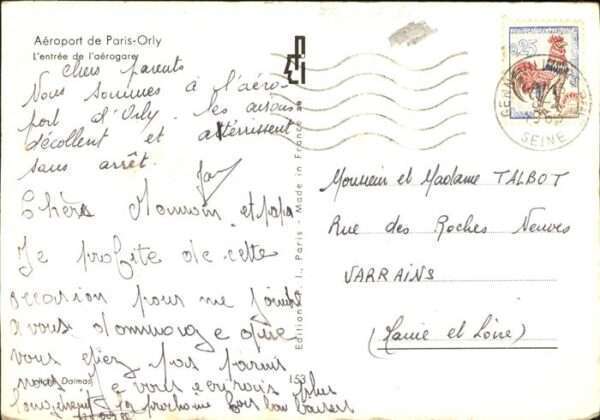 Aéroport de Paris-Orly
L'entrée de l'aérogare
Chers parents
Nous sommes à l'aéro-
port d'Orly. les avions
décollent et attérrissent
sans arrêt.
Chère Maman et papa
Je profite de cette
occasion pour me joindre
a vous dommage que
vous étiez pas parmis
nous je vous ecrirais plus
longuement la prochaine fois bon baisers
Dalmas
153
Editions P.I., Paris - Made in France
0,25
SEINE
Monsieur et Madame TALBOT
Rue des Roches Neuves
VARRAINS
(Maine et Loire)